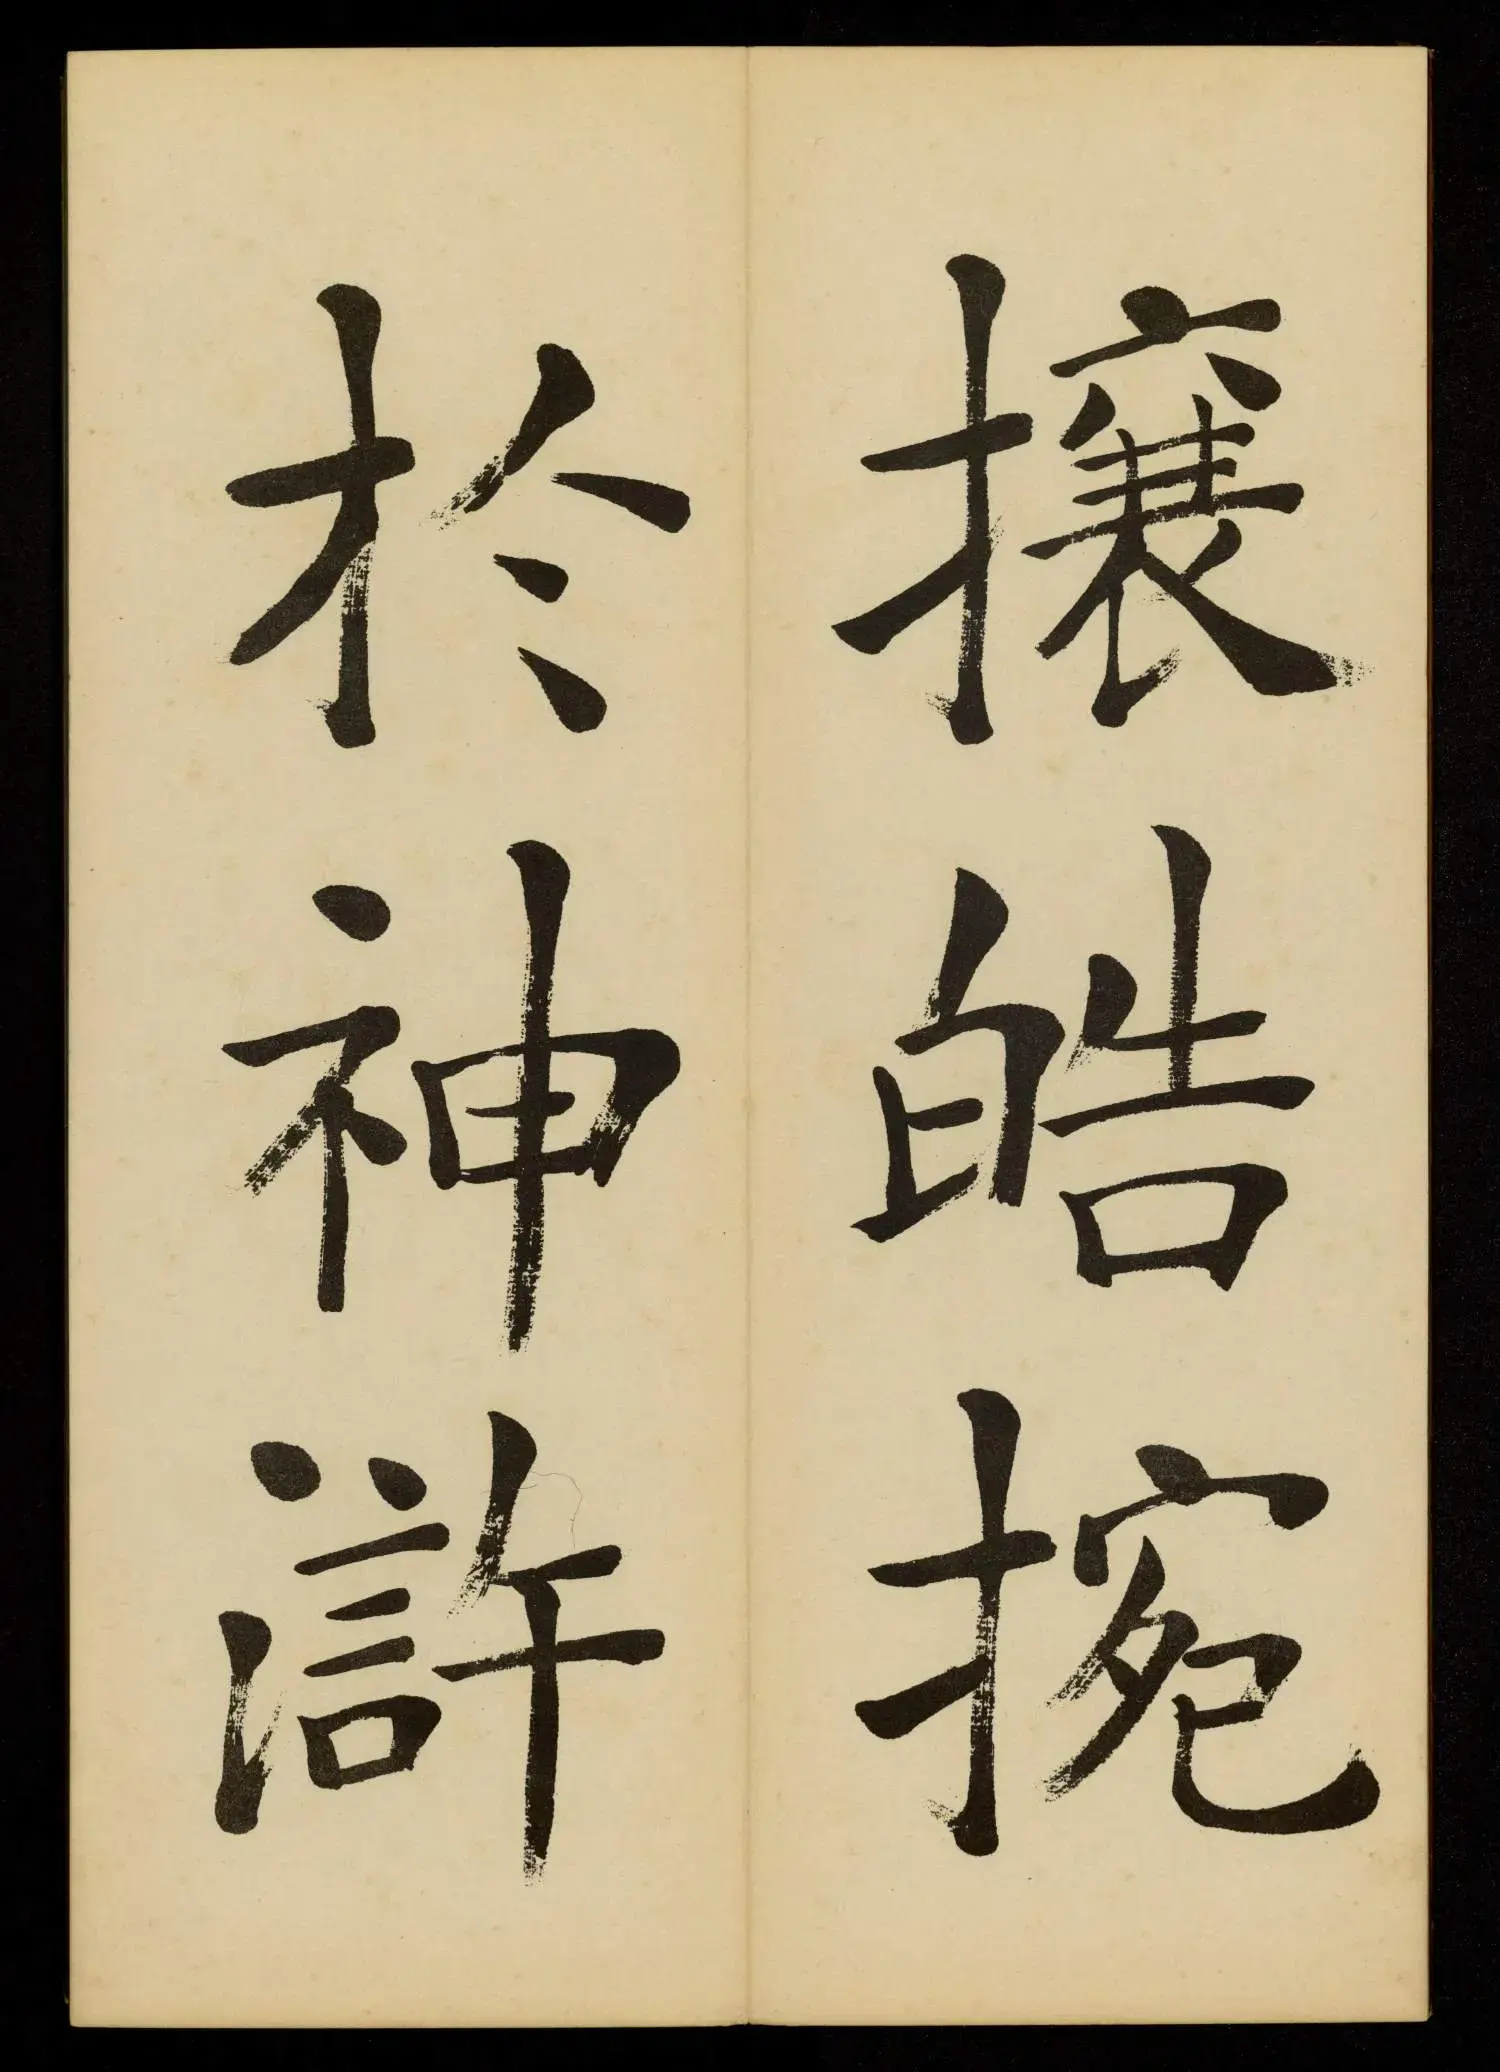 攘皓捥
於神滸